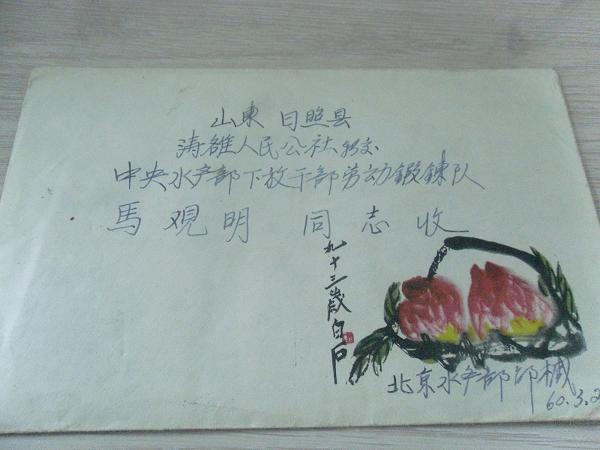 山東 日照县
涛雒人民公社转交
中央水产部下放干部劳动鍛鍊队
馬观明 同志收
九十三歲白石
北京水产部邮械
60.3.2